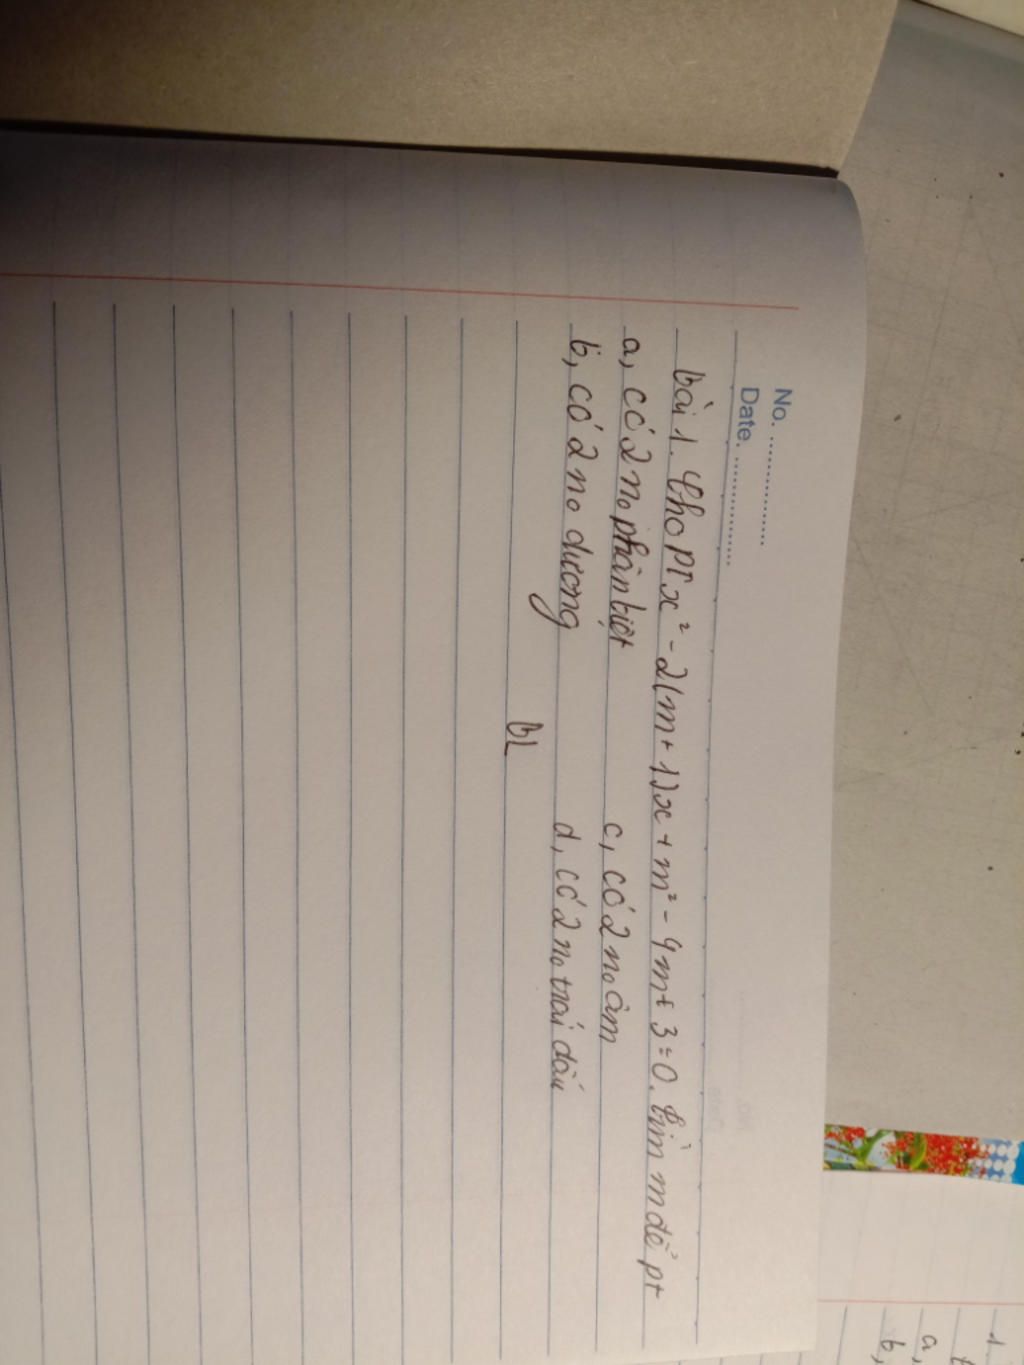 No. ....................
Date. ....................
bài 1. Cho pt x² - 2(m + 1)x + m² - 4m + 3 = 0. Tìm m để pt
a, có 2 n₀ phân biệt c, có 2 n₀ âm
b, có 2 n₀ dương d, có 2 n₀ trái dấu
bL
1.
a,
b,